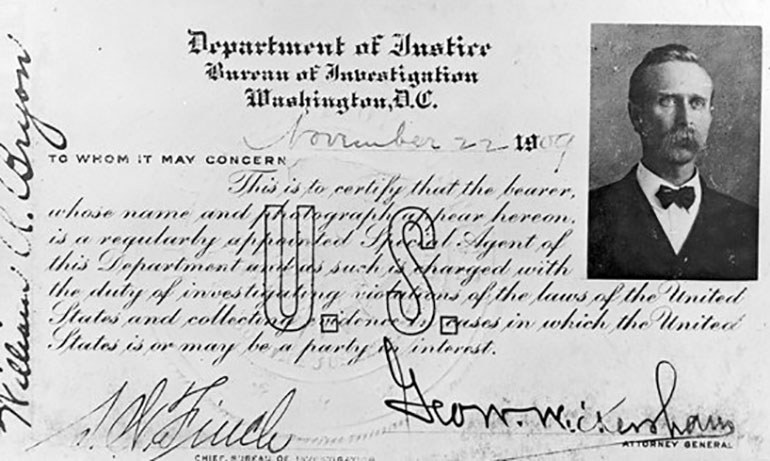 Department of Justice
Bureau of Investigation
Washington, D.C.
November 22 1909
TO WHOM IT MAY CONCERN
This is to certify that the bearer,
whose name and photograph appear hereon,
is a regularly appointed Special Agent of
this Department and as such is charged with
the duty of investigating violations of the laws of the United
States and collecting evidence in cases in which the United
States is or may be a party in interest.
U. S.
William A. Bryon
S W Finch
CHIEF, BUREAU OF INVESTIGATION
Geo. W. Wickersham
ATTORNEY GENERAL